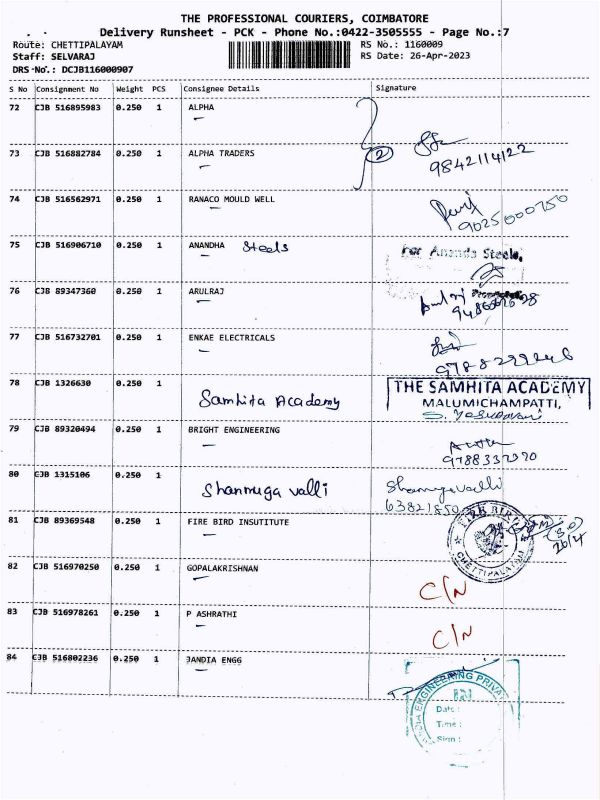 THE PROFESSIONAL COURIERS, COIMBATORE
Delivery Runsheet - PCK - Phone No.:0422-3505555 - Page No.:7
Route: CHETTIPALAYAM RS No.: 1160009
Staff: SELVARAJ RS Date: 26-Apr-2023
DRS No.: DCJB116000907
S No Consignment No Weight PCS Consignee Details Signature
72 CJB 516895983 0.250 1 ALPHA
73 CJB 516882784 0.250 1 ALPHA TRADERS 2 9842114122
74 CJB 516562971 0.250 1 RANACO MOULD WELL 9025000750
75 CJB 516906710 0.250 1 ANANDHA Steels For Ananda Steels,
76 CJB 89347360 0.250 1 ARULRAJ
77 CJB 516732701 0.250 1 ENKAE ELECTRICALS
78 CJB 1326630 0.250 1 Samhita Academy THE SAMHITA ACADEMY
MALUMICHAMPATTI,
79 CJB 89320494 0.250 1 BRIGHT ENGINEERING
80 CJB 1315106 0.250 1 Shanmuga valli Shanmugavalli
81 CJB 89369548 0.250 1 FIRE BIRD INSUTITUTE FIRE BIRD CHETTIPALAYAM 26/4
82 CJB 516970250 0.250 1 GOPALAKRISHNAN C/N
83 CJB 516978261 0.250 1 P ASHRATHI C/N
84 CJB 516802236 0.250 1 JANDIA ENGG
ENGINEERING PRIVA
IN
Date :
Time :
Sign :